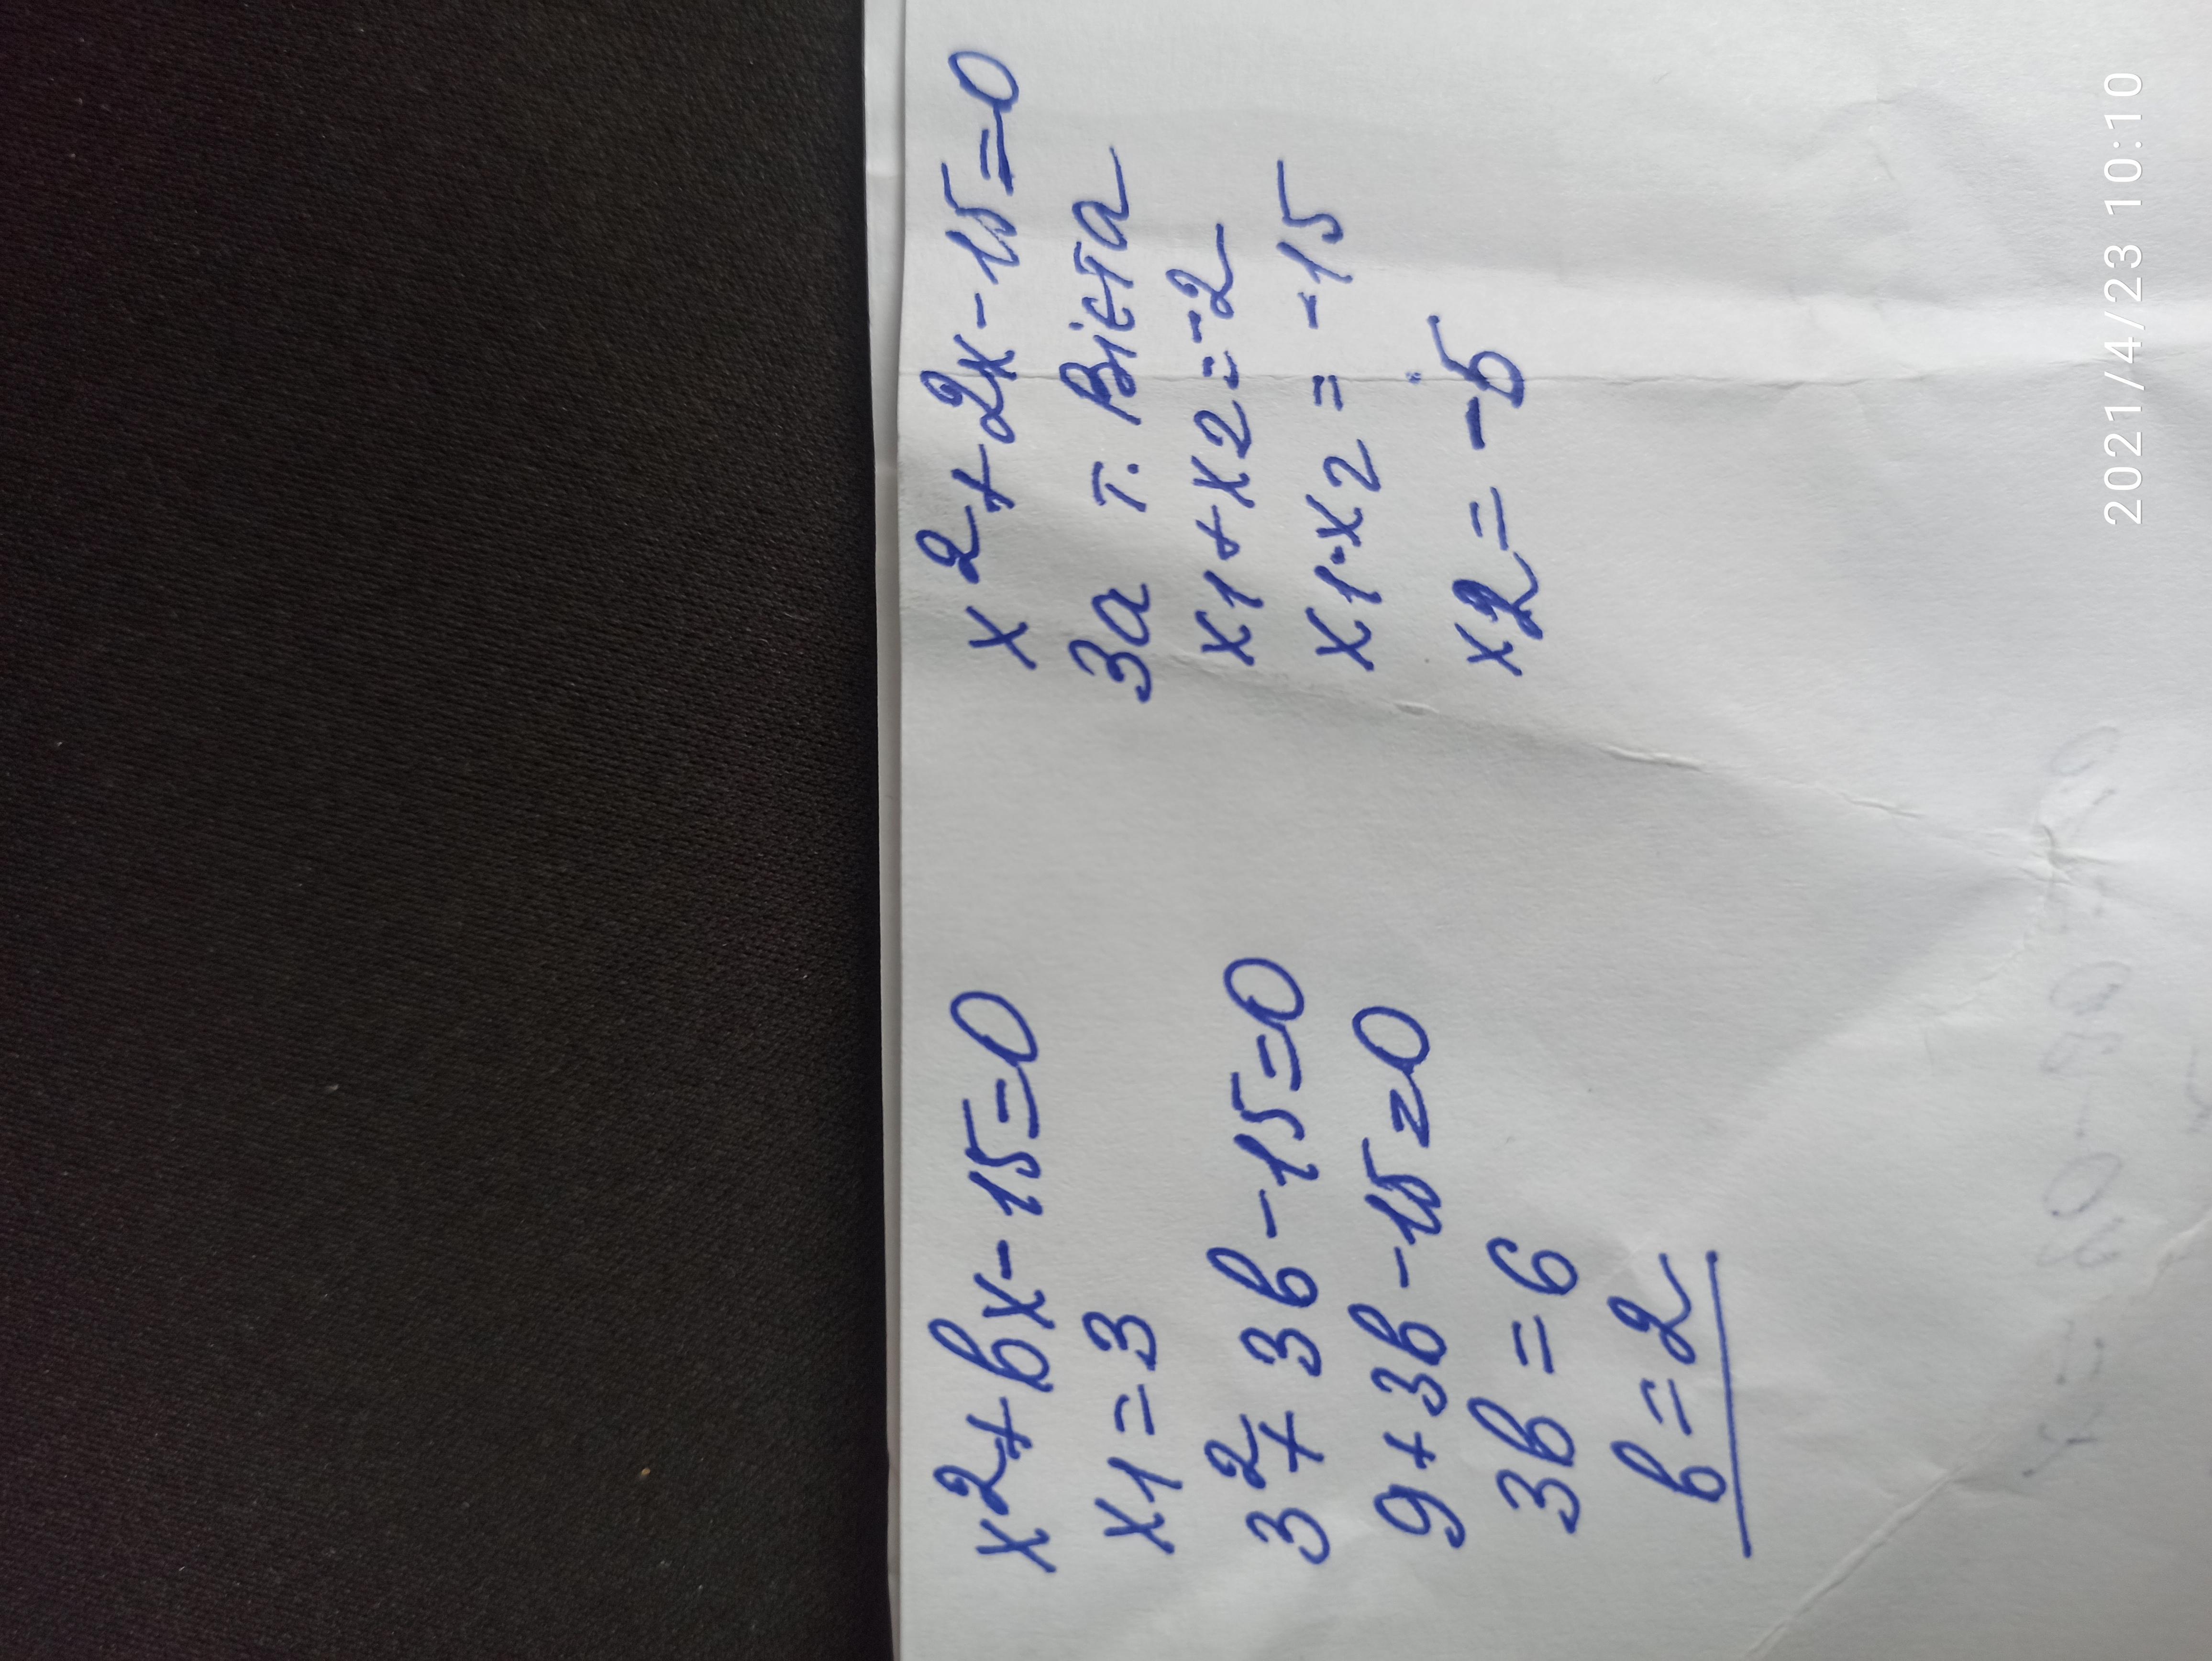 x²+bx-15=0
x1=3
3²+3b-15=0
9+3b-15=0
3b=6
b=2
x²+2x-15=0
За т. Вієта
x1+x2=-2
x1·x2=-15
x2=-5
2021/4/23 10:10